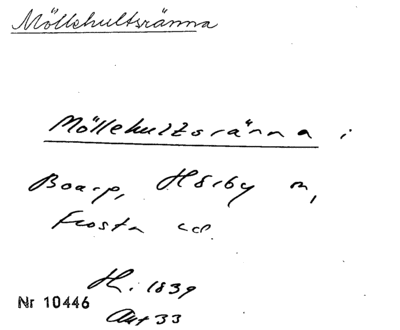 Möllehultsränna
Möllehultsränna i
Boarp, Hörby sn,
Frosta hd.
H. 1839
Nr 10446
Akt 33